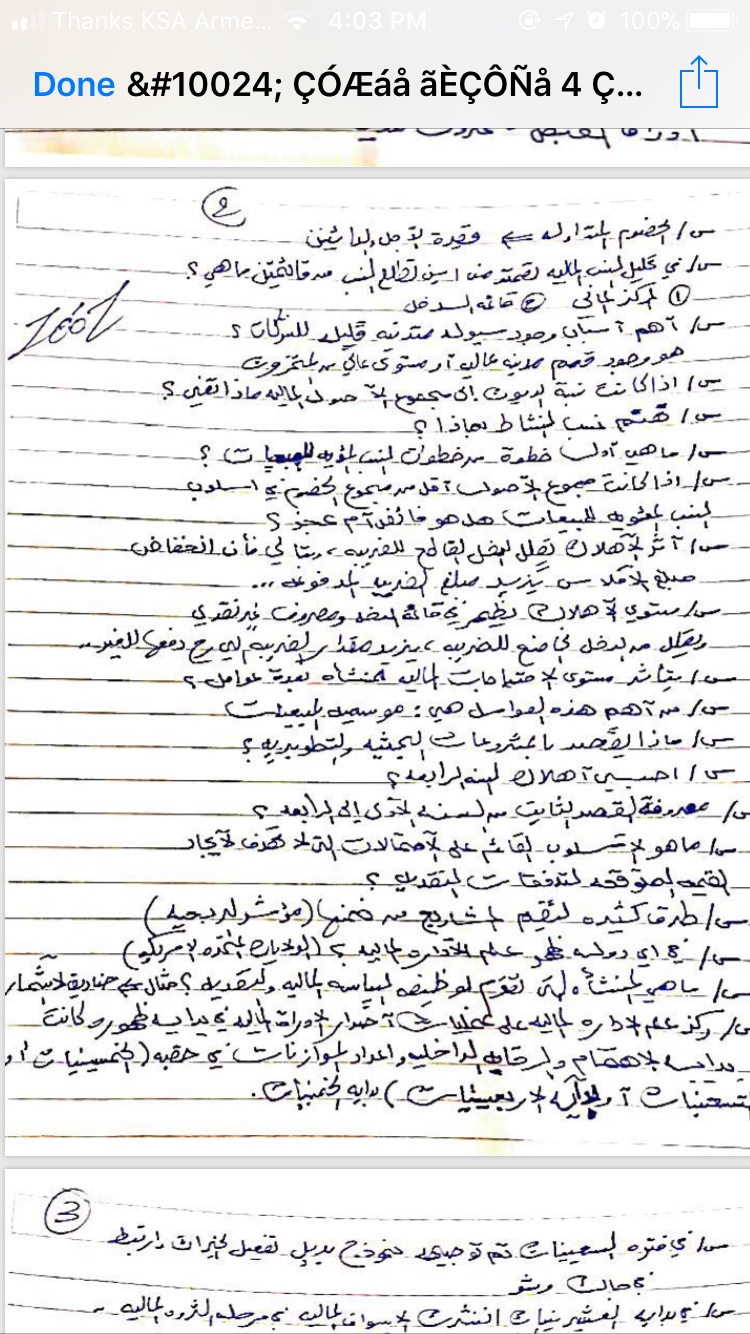 Thanks KSA Arme... 4:03 PM 100%
Done &#10024; ÇÓÆáå ãÈÇÔÑå 4 Ç...
2
س/ الخصوم المتداوله ⇐ قصيرة الأجل والدائنين
س/ في تحليل النسب الماليه تعتمد من اين تطلع النسب من قائمتين ماهي؟
① المركز المالي ② قائمه الدخل
س/ أهم أسباب وجود سيوله متدنيه قليله للشركات؟
هو وجود قصم مدينه عاليه أو مستوى عالي من المخزون
س/ اذا كانت نسبة الديون الى مجموع الأصول الماليه ماذا تقيس؟
س/ تهتم نسب النشاط بماذا؟
س/ ماهي أول خطوة من خطوات النسب المؤيه للمبيعات؟
س/ اذا كانت مجموع الأصول أقل من مجموع الخصوم في اسلوب
النسب المئويه للمبيعات هل هو فائض أم عجز؟
س/ أثر الأهلاك تقلل الدخل القابل للضريبه، وبتالي فأن انخفاض
مبلغ الأهلاك يزيد مبلغ الضريبه المدفوعه ...
س/ مستوى الأهلاك تظهر في قائمة الدخل ومصروف غير نقدي
ويقلل من الدخل الخاضع للضريبه، يزيد مقدار الضريبه التي يتم دفعها للغير..
س/ يتأثر مستوى الاحتياجات الماليه للمنشأه بعدة عوامل؟
س/ من أهم هذه العوامل هي: موسميه المبيعات
س/ ماذا يقصد بالمشروعات البحثيه والتطويريه؟
س/ احسبي أهلاك السنه الرابعه؟
س/ معروفة القصد الثابت من السنه الأولى الى الرابعه؟
س/ ماهو الأسلوب القائم على الأحتمالات التي لا تهدف لأيجاد
القيمه المتوقعه لتدفقات النقديه؟
س/ طرق كثيره لتقيم المشاريع من ضمنها (مؤشر الربحيه)
س/ في اي دوله ظهر علم الأداره الماليه؟ (الولايات المتحده الامريكيه)
س/ ماهي المنشأه التي تقوم بوظيفه السياسه الماليه والنقديه؟ مثال على صناديق الأستثمار
س/ ركز علم الاداره الماليه على عمليات أصدار الأوراق الماليه في بدايه ظهوره وكانت
بدايه الاهتمام والرقابه الداخليه واعداد الموازنات في حقبه (الخمسينيات او
التسعينيات أو بدايه الاربعينيات) بدايه الخمسينيات.
3
س/ في فتره السبعينيات تم توجيه نموذج بديل تفعيل الخيرات وارتبط
س/ في بدايه العشرينيات انتشرت الاسواق الماليه في مرحله الثروه الماليه ..